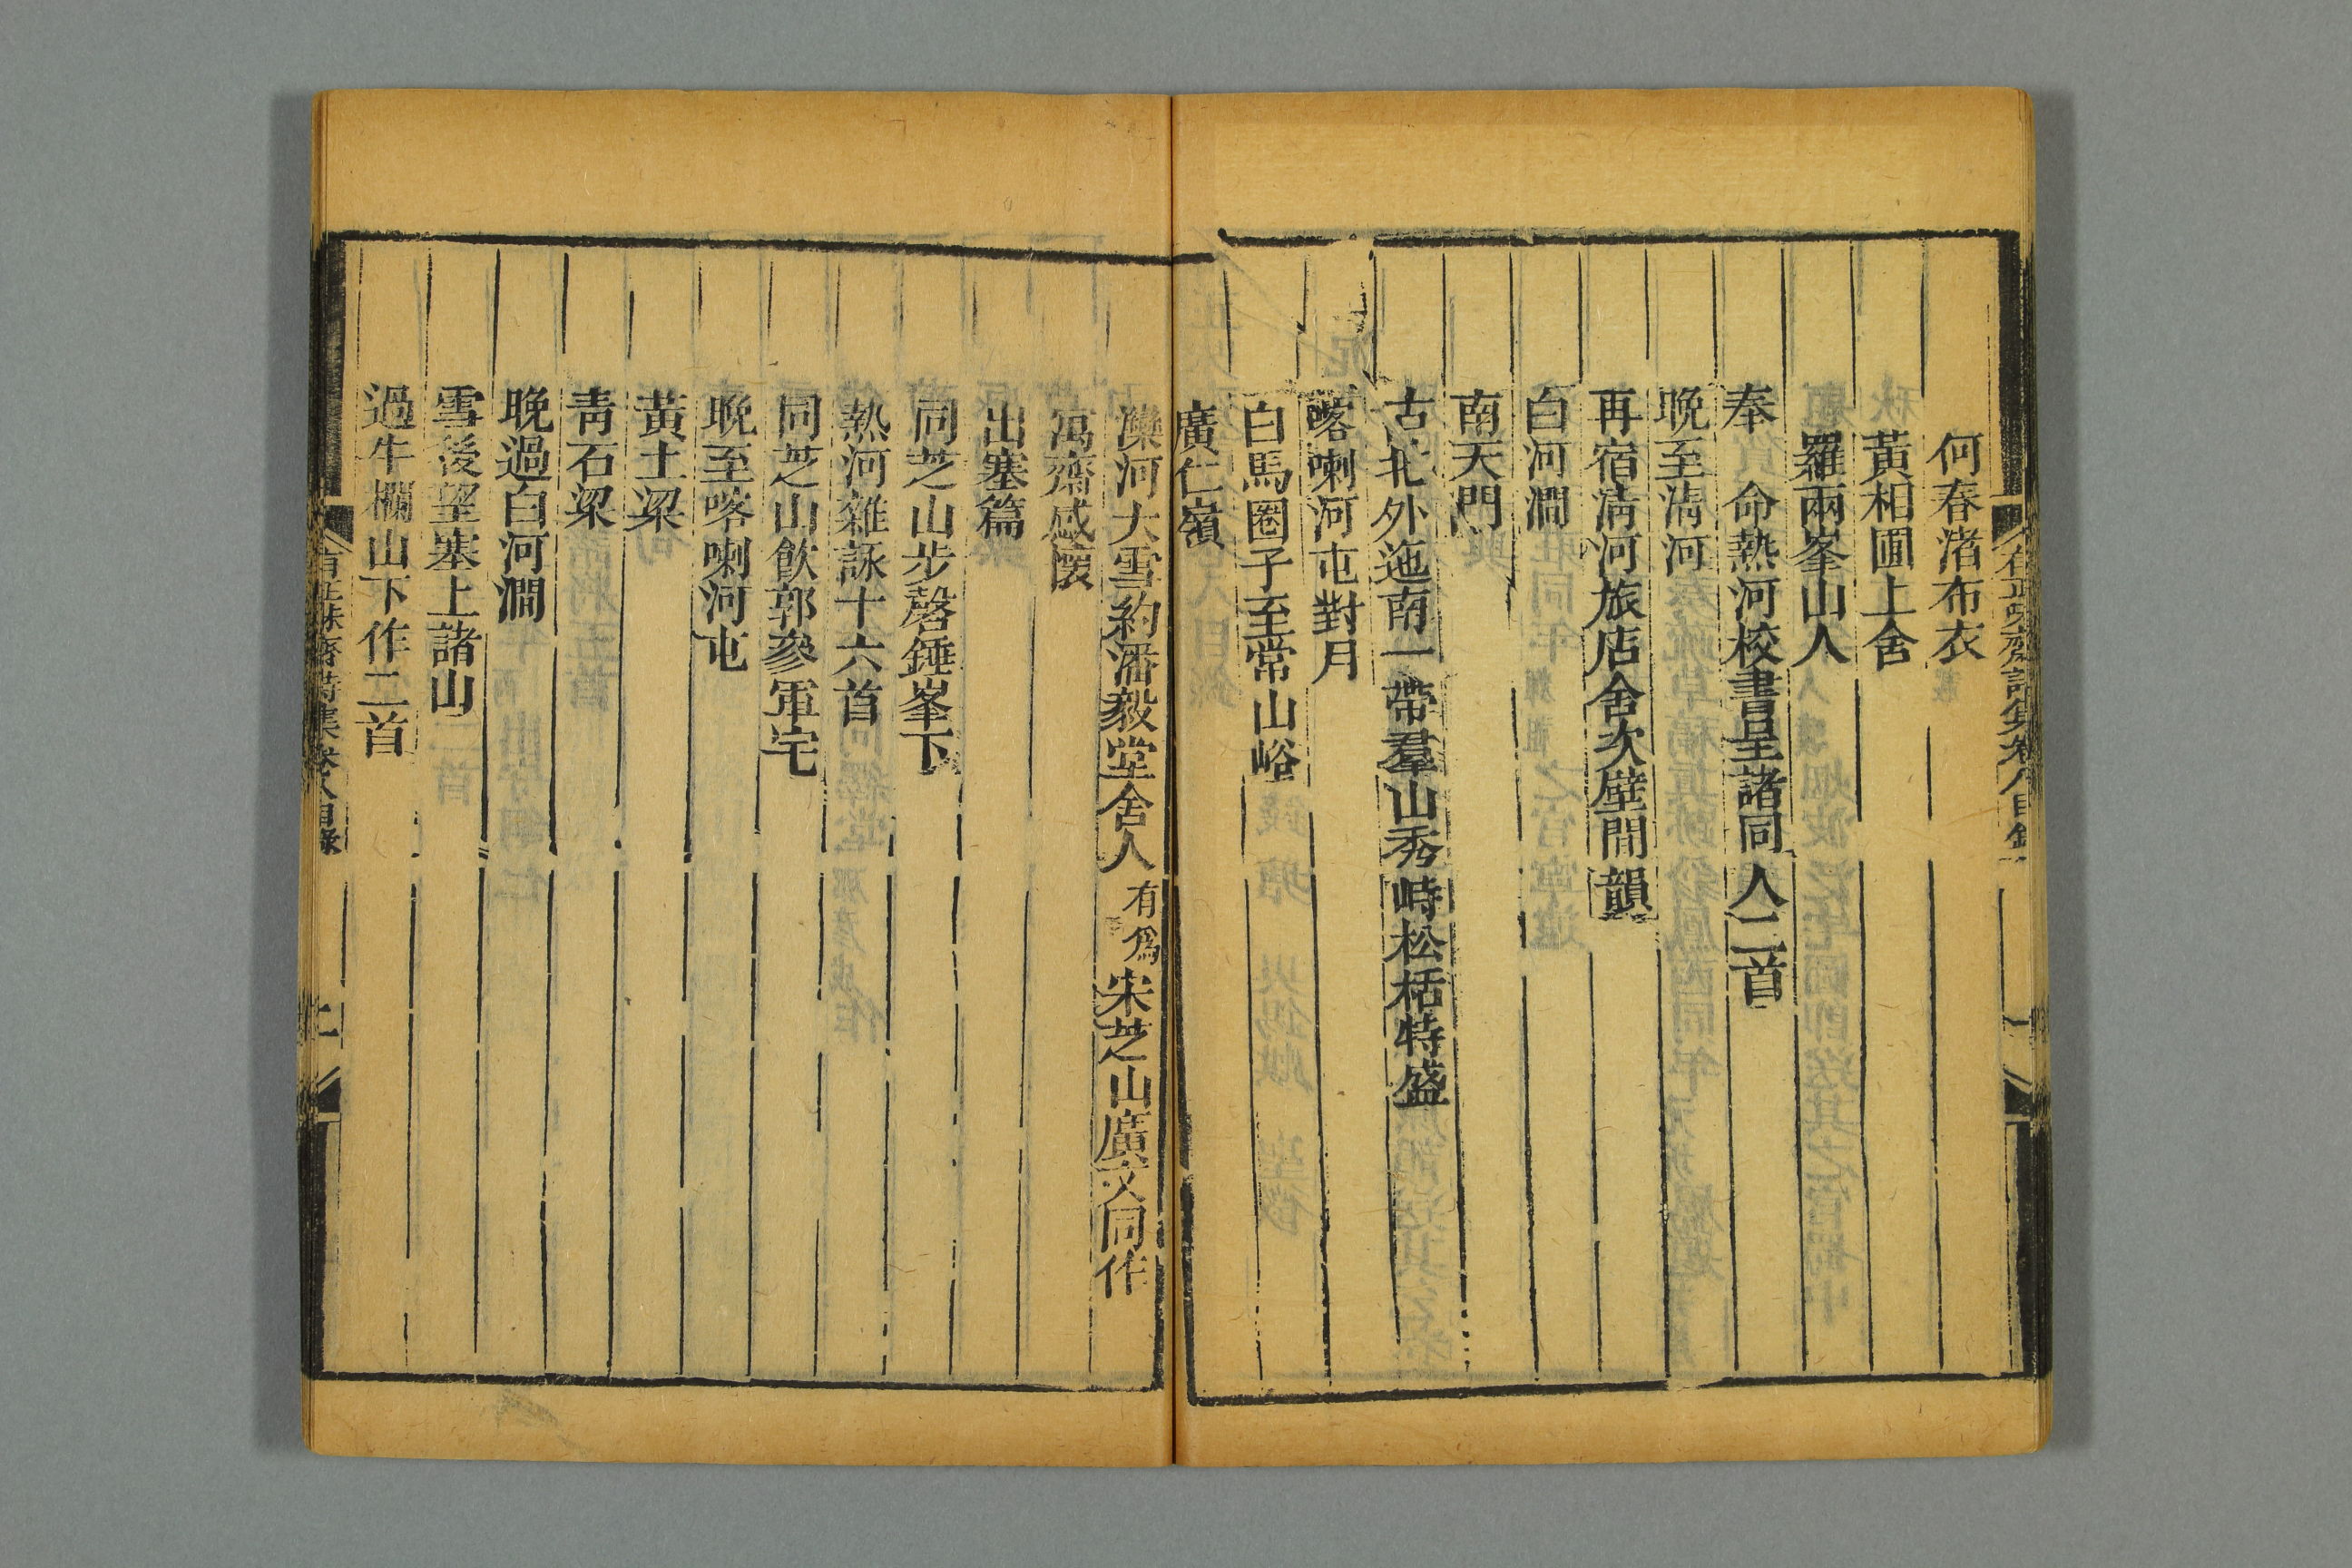 何春渚布衣
黃相圃上舍
羅兩峯山人
奉 命熱河校書呈諸同人二首
晚至淸河
再宿淸河旅店舍次壁間韻
白河澗
南天門
古北外迤南一帶羣山秀峙松栝特盛
喀喇河屯對月
白馬圈子至常山峪
廣仁嶺
灤河大雪約潘毅堂舍人有爲宋芝山廣文同作
寓齋感懷
出塞篇
同芝山步磬錘峯下
熱河雜詠十六首
同芝山飮郭參軍宅
晚至喀喇河屯
黃土梁
靑石梁
晚過白河澗
雪後望塞上諸山
過牛欄山下作二首
有正味齋詩集卷八目錄